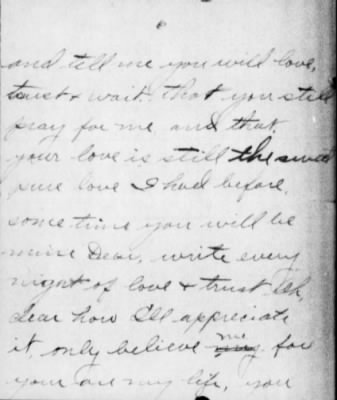 and tell me you will love,
trust & wait. that you still
pray for me and that
your love is still the sweet
pure love I had before.
some time you will be
mine Dear, write every
night of love & trust Oh,
dear how I'll appreciate
it, only believe me for
your are my life, you